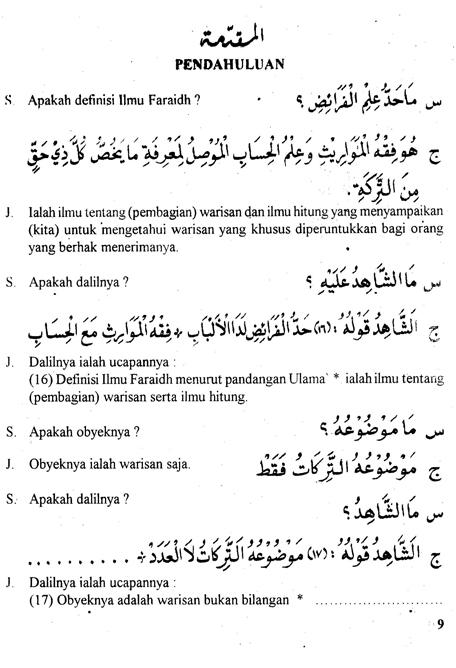 المقدّمة
PENDAHULUAN
س مَا حَدُّ عِلْمِ الْفَرَائِضِ ؟
S. Apakah definisi Ilmu Faraidh ?
ج هُوَ فِقْهُ الْمَوَارِيْثِ وَعِلْمُ الْحِسَابِ الْمُوْصِلُ لِمَعْرِفَةِ مَا يَخُصُّ كُلَّ ذِيْ حَقٍّ
مِنَ التَّرِكَةِ.
J. Ialah ilmu tentang (pembagian) warisan dan ilmu hitung yang menyampaikan
(kita) untuk mengetahui warisan yang khusus diperuntukkan bagi orang
yang berhak menerimanya.
س مَا الشَّاهِدُ عَلَيْهِ ؟
S. Apakah dalilnya ?
ج الشَّاهِدُ قَوْلُهُ : (١٦) حَدُّ الْفَرَائِضِ لَدَا الْأَلْبَابِ * فِقْهُ الْمَوَارِثِ مَعَ الْحِسَابِ
J. Dalilnya ialah ucapannya :
(16) Definisi Ilmu Faraidh menurut pandangan Ulama' * ialah ilmu tentang
(pembagian) warisan serta ilmu hitung.
س مَا مَوْضُوْعُهُ ؟
S. Apakah obyeknya ?
ج مَوْضُوْعُهُ التَّرِكَاتُ فَقَطْ
J. Obyeknya ialah warisan saja.
س مَا الشَّاهِدُ ؟
S. Apakah dalilnya ?
ج الشَّاهِدُ قَوْلُهُ : (١٧) مَوْضُوْعُهُ التَّرِكَاتُ لَا الْعَدَدْ * ..........
J. Dalilnya ialah ucapannya :
(17) Obyeknya adalah warisan bukan bilangan * ..............................
9